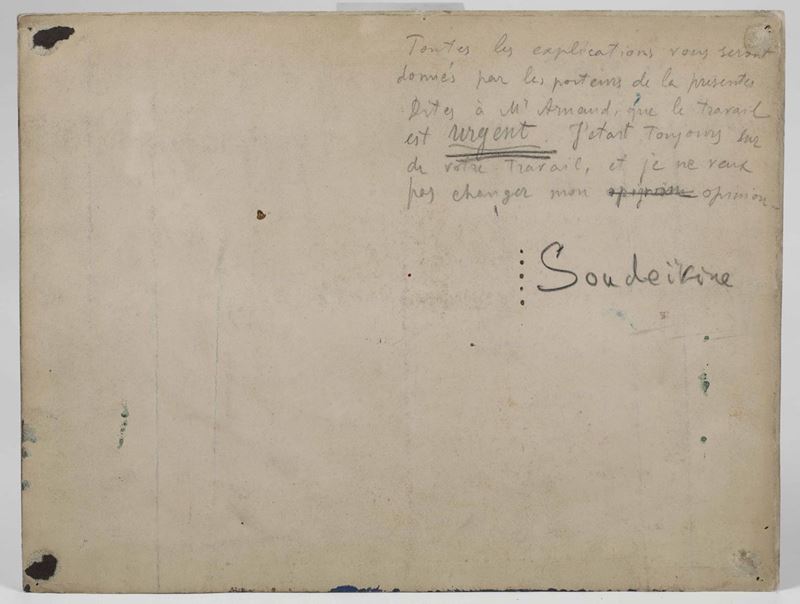 Toutes les explications vous seront
donnés par les porteurs de la présentes
Dites à Mr Arnaud, que le travail
est urgent. J'etait toujours sur
de votre travail, et je ne veux
pas changer mon opinion
Soudeïkine